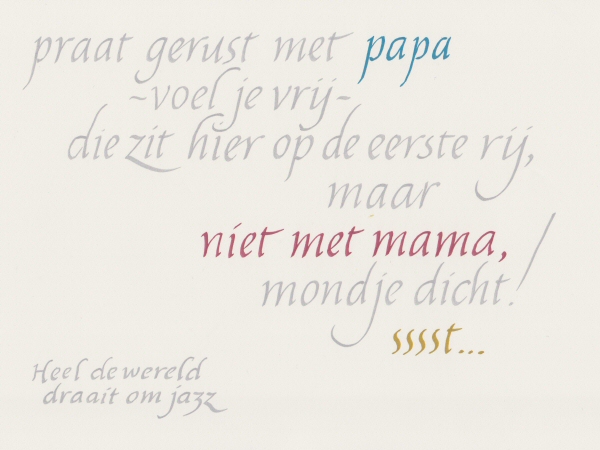 praat gerust met papa
~voel je vrij~
die zit hier op de eerste rij,
maar
niet met mama,
mondje dicht!
sssst...
Heel de wereld
draait om jazz